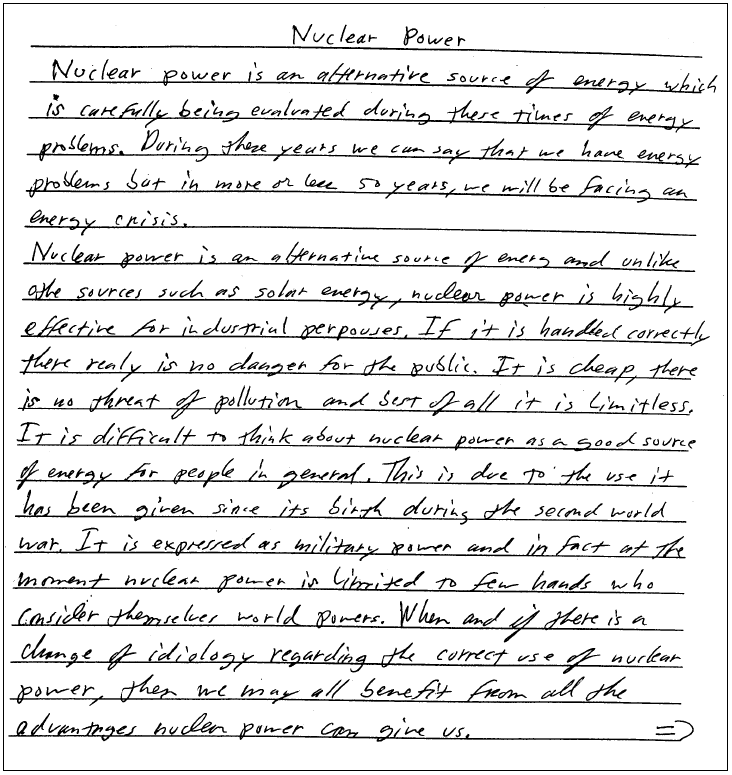 Nuclear Power
Nuclear power is an alternative source of energy which
is carefully being evaluated during these times of energy
problems. During these years we can say that we have energy
problems but in more or less 50 years, we will be facing an
energy crisis.
Nuclear power is an alternative source of energ and unlike
othe sources such as solar energy, nuclear power is highly
effective for industrial perpouses. If it is handled correctly
there realy is no danger for the public. It is cheap, there
is no threat of pollution and best of all it is limitless.
It is difficult to think about nuclear power as a good source
of energy for people in general. This is due to the use it
has been given since its birth during the second world
war. It is expressed as military power and in fact at the
moment nuclear power is limited to few hands who
consider themselves world powers. When and if there is a
change of idiology regarding the correct use of nuclear
power, then we may all benefit from all the
advantages nuclear power can give us. ⇒